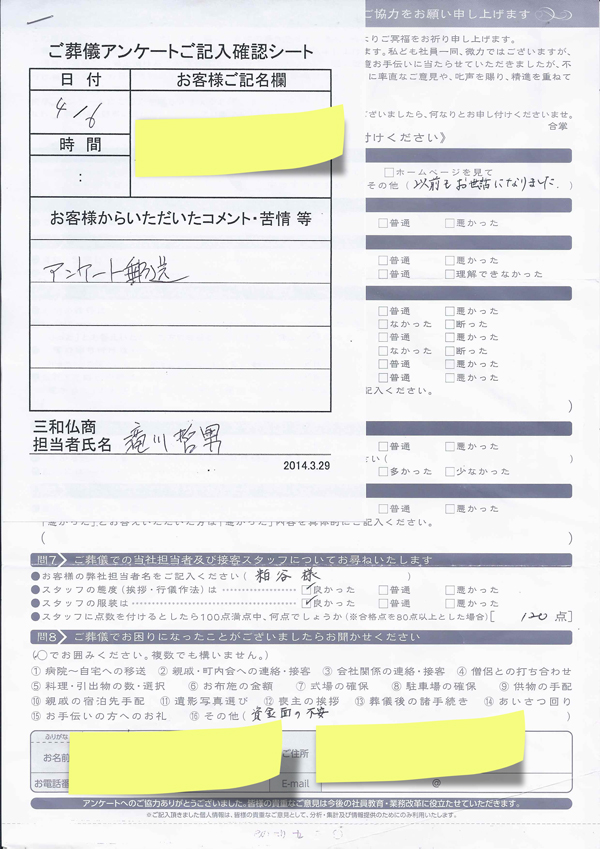 ご葬儀アンケートご記入確認シート
日付
お客様ご記名欄
4/6
時間
:
お客様からいただいたコメント・苦情 等
アンケート郵送
三和仏商
担当者氏名 滝川哲男
2014.3.29
ご協力をお願い申し上げます
ご冥福をお祈り申し上げます。
ます。私ども社員一同、微力ではございますが、
お手伝いに当たらせていただきましたが、不
に率直なご意見や、叱声を賜り、精進を重ねて
ございましたら、何なりとお申し付けくださいませ。
合掌
付けください》
□ホームページを見て
その他（ 以前もお世話になりました ）
□普通 □悪かった
□普通 □悪かった
□普通 □理解できなかった
□普通 □悪かった
□なかった □断った
□普通 □悪かった
□なかった □断った
□普通 □悪かった
□普通 □悪かった
記入ください。
）
□普通 □悪かった
さい（ ）
□多かった □少なかった
□普通 □悪かった
「悪かった」とお答えいただいた方は「悪かった」内容を具体的にご記入ください。
（ ）
問7 ご葬儀での当社担当者及び接客スタッフについてお尋ねいたします
●お客様の弊社担当者名をご記入ください（ 粕谷様 ）
●スタッフの態度（挨拶・行儀作法）は ☑良かった □普通 □悪かった
●スタッフの服装は ☑良かった □普通 □悪かった
●スタッフに点数を付けるとしたら100点満点中、何点でしょうか（※合格点を80点以上とした場合）[ 120 点]
問8 ご葬儀でお困りになったことがございましたらお聞かせください
（○でお囲みください。複数でも構いません。）
① 病院～自宅への移送 ② 親戚・町内会への連絡・接客 ③ 会社関係の連絡・接客 ④ 僧侶との打ち合わせ
⑤ 料理・引出物の数・選択 ⑥ お布施の金額 ⑦ 式場の確保 ⑧ 駐車場の確保 ⑨ 供物の手配
⑩ 親戚の宿泊先手配 ⑪ 遺影写真選び ⑫ 喪主の挨拶 ⑬ 葬儀後の諸手続き ⑭ あいさつ回り
⑮ お手伝いの方へのお礼 ⑯ その他（ 資金面の不安 ）
ふりがな
お名前
ご住所
お電話番
E-mail @
アンケートへのご協力ありがとうございました。皆様の貴重なご意見は今後の社員教育・業務改革に役立たせていただきます。
※ご記入頂きました個人情報は、皆様の貴重なご意見として、分析・集計及び情報提供のためにのみ利用いたします。